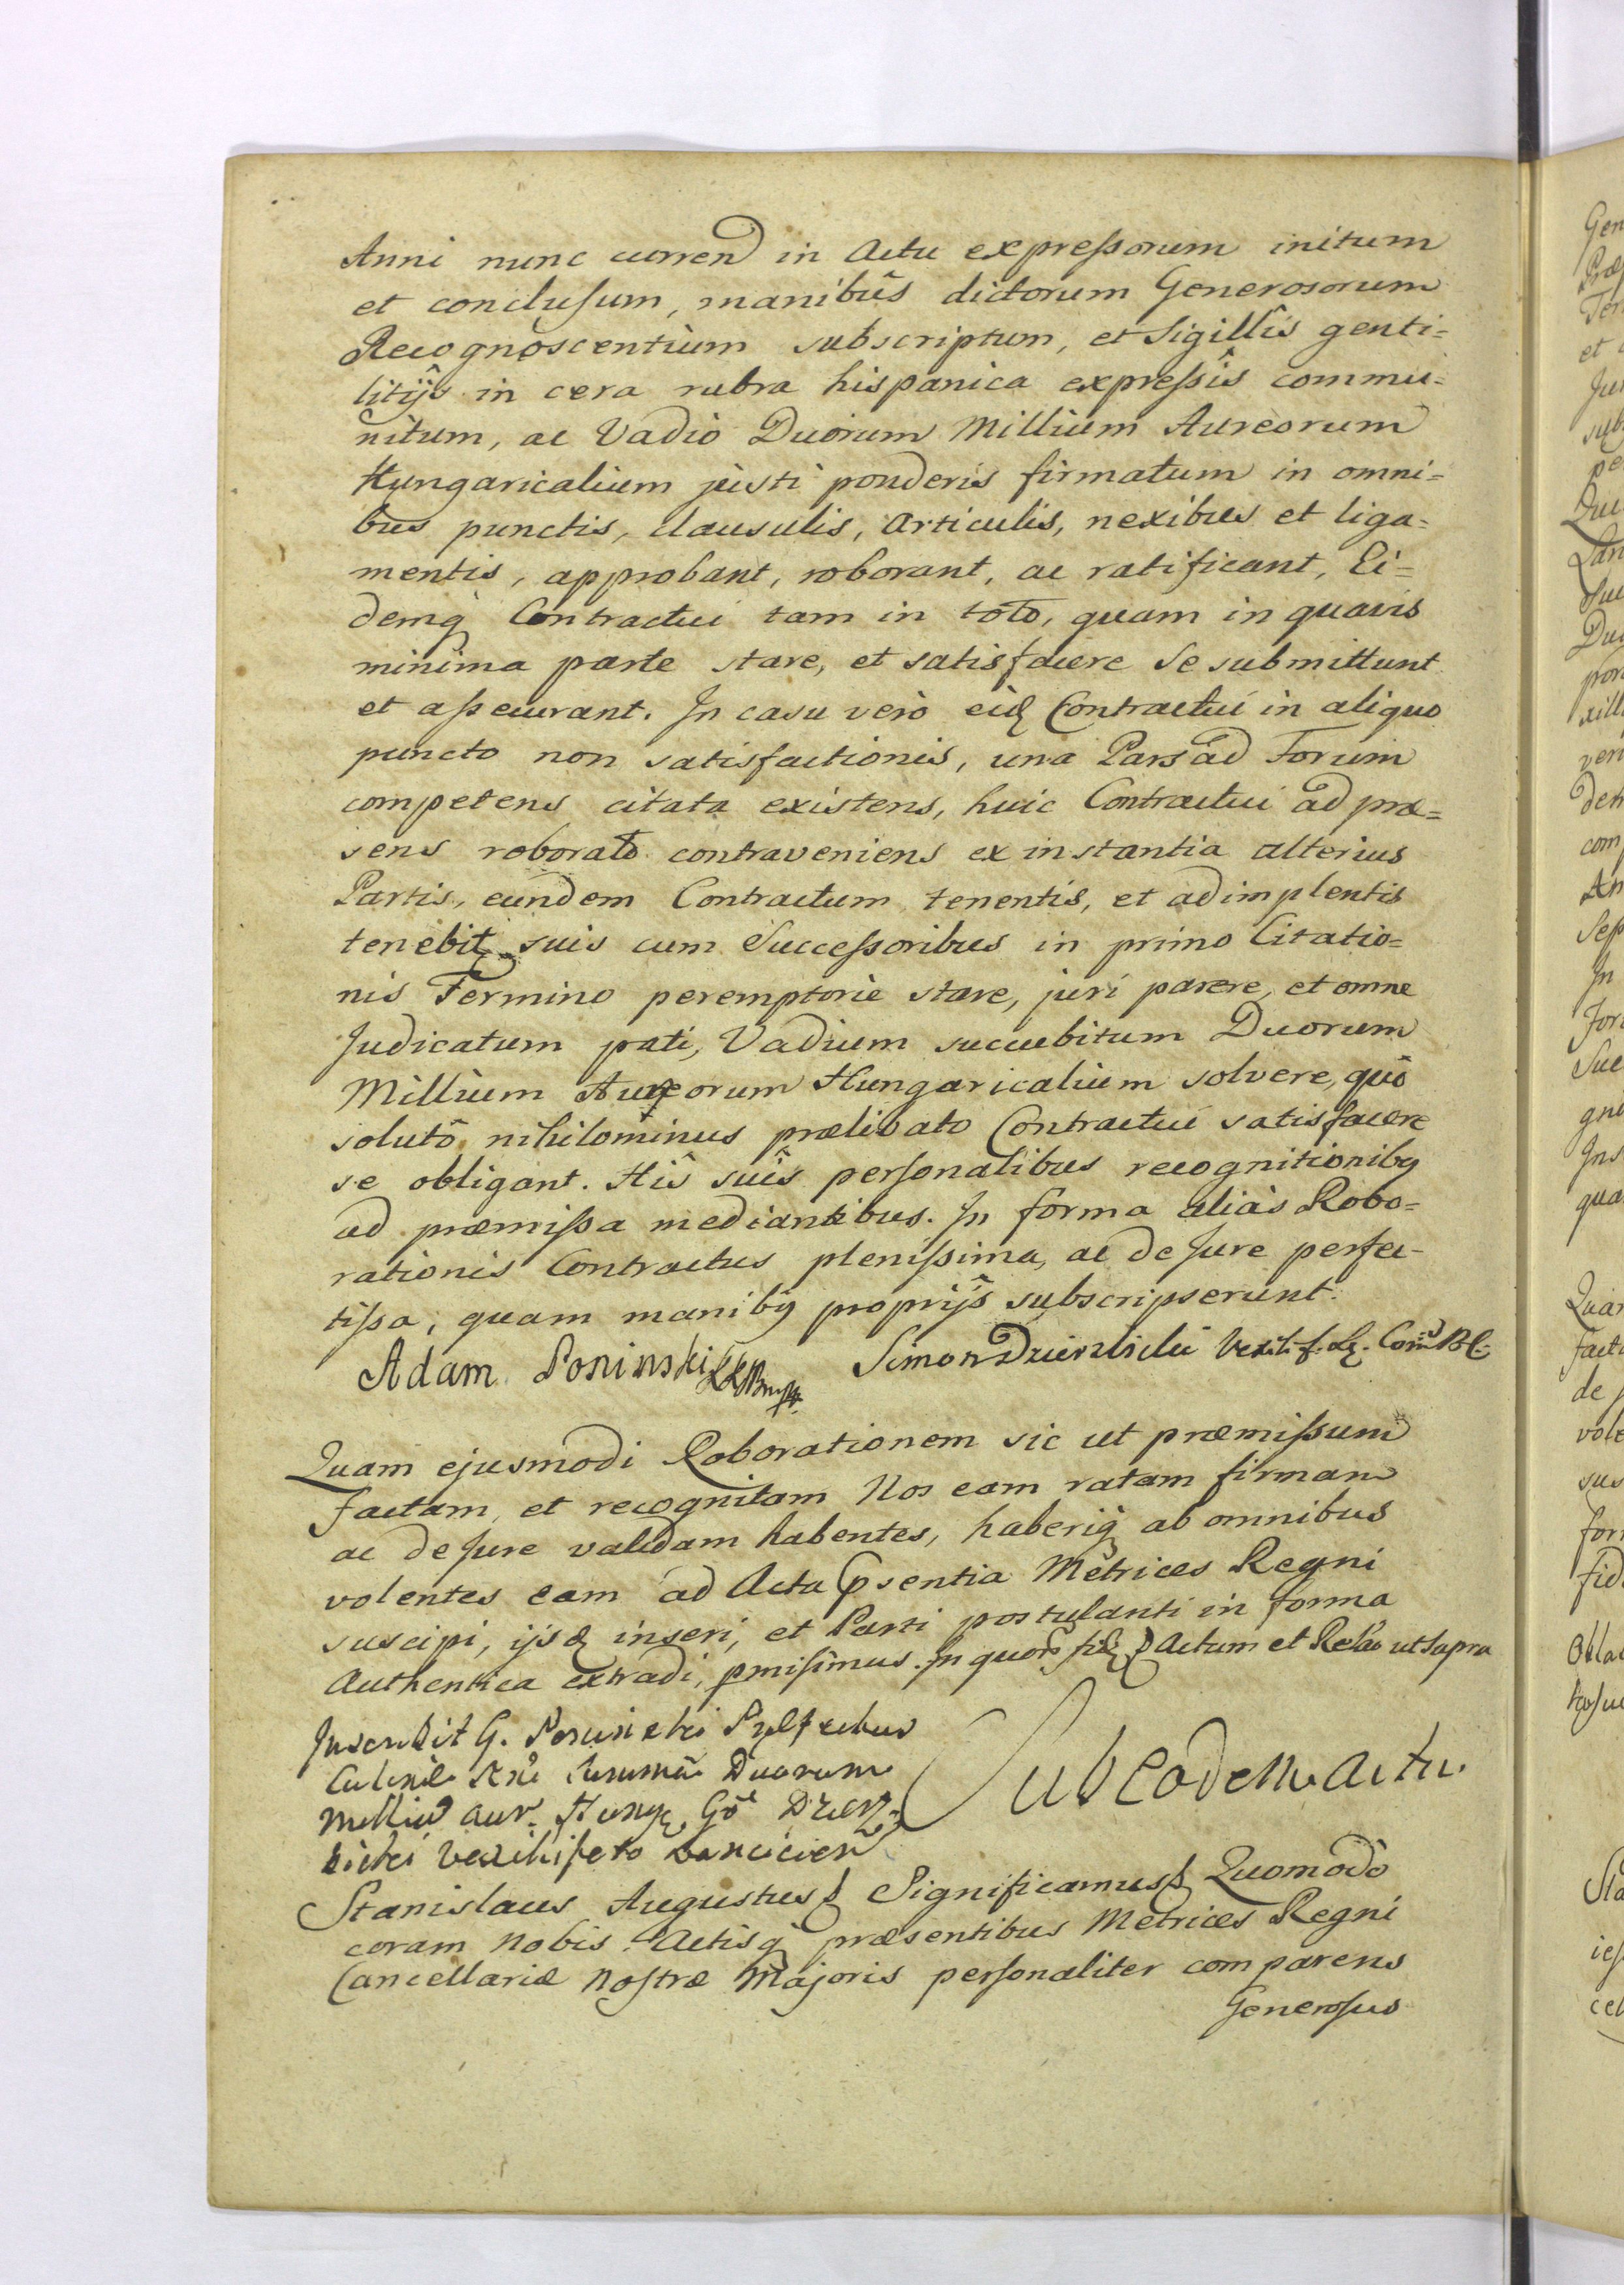 Anni nunc curren in Actu expreſsorum initum
et concluſum, manibûs dictorum Generosorum
Recognoscentium subscriptum, et Sigillîs genti=
litijs in cera rubra hispanica expreſsîs commu=
nitum, ac Vadio Duorum Millium Aureorum
Hungaricalium justi ponderis firmatum in omni=
bus punctis, clausulis, Articulis, nexibus et liga=
mentis, approbant, roborant, ac ratificant, Ei=
demq Contractui tam in toto, quam in quavis
minima parte stare, et satisfacere Se submittunt
et aſsecurant. In casu verò eid Contractui in aliquo
puncto non satisfactionis, una Pars ad Forum
competens citata existens, huic Contractui ad præ=
sens roborato contraveniens ex instantia alterius
Partis, eundem Contractum tenentis, et adimplentis
tenebit suis cum Succeſsoribus in primo Citatio=
nis Termino peremptoriè stare, juri parere, et omne
Judicatum pati, Vadium succubitum Duorum
Millium Aureorum Hungaricalium solvere, quô
solutô nihilominus prælibato Contractui satisfacere
se obligant. Hîs suîs perſonalibus recognitionibq
ad præmiſsa mediantibus. In forma aliàs Robo=
rationis Contractus pleniſsima, ac de Jure perfec-
tiſsa, quam manibq proprijs subscripserunt.
Adam Poninski Simon Dzierzbicki Vexilif. Lę.
Quam ejusmodi Roborationem sic ut præmiſsum
factam, et recognitam Nos eam ratam firmam
ac de Jure validam habentes, haberiq ab omnibus
volentes eam ad Acta psentia Metrices Regni
suscipi, ijsq inseri, et Parti postulanti in forma
Authentica extradi, pmiſimus. In quor fid Actum et Relâo ut supra
Inscribit G. Poninski
Summã Duorum
Milliu aur. Hung Gõ Dzierz=
bicki Vexilifero Lanciciens
Sub eodem actu.
Stanislaus Augustus Significamus Quomodo
coram Nobis Actisq præsentibus Metrices Regni
Cancellariæ Noſtræ Majoris perſonaliter comparens
Generoſus